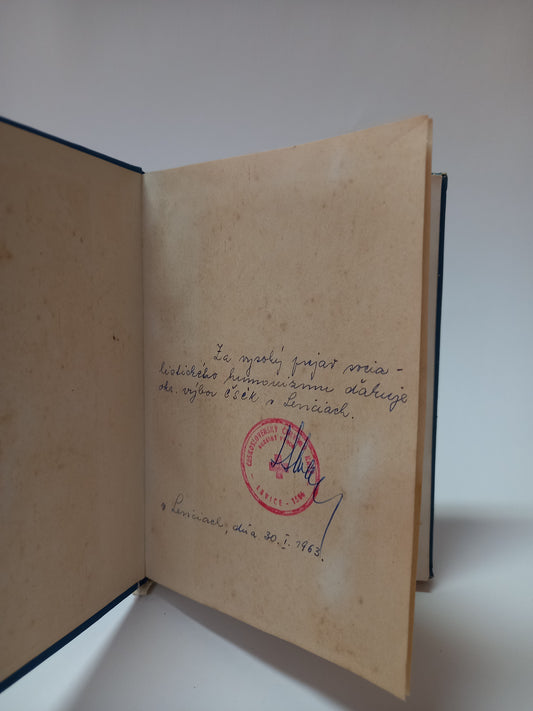 Za vysoký prejav socia-
listického humanizmu ďakuje
okr. výbor ČSČK v Leviciach.
ČESKOSLOVENSKÝ
LEVICE
v Leviciach, dňa 30. I. 1963.